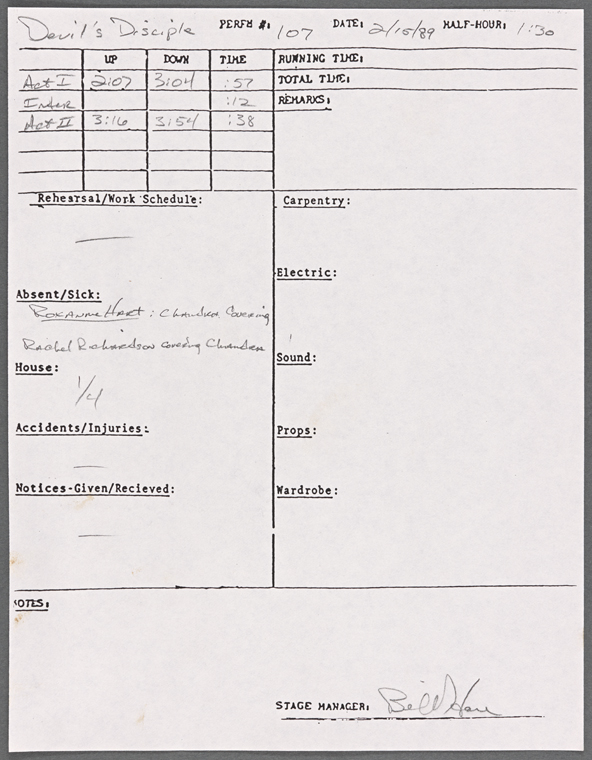 Devil's Disciple PERFM #: 107 DATE: 2/15/89 HALF-HOUR: 1:30
UP DOWN TIME RUNNING TIME:
Act I 2:07 3:04 :57 TOTAL TIME:
Inter :12 REMARKS:
Act II 3:16 3:54 :38
Rehearsal/Work Schedule: Carpentry:
—
Electric:
Absent/Sick:
Roxanne Hart: Chandra Covering
Rachel Richardson covering Chandra
Sound:
House:
1/4
Accidents/Injuries: Props:
—
Notices-Given/Recieved: Wardrobe:
—
OTES:
STAGE MANAGER: Bill Hare